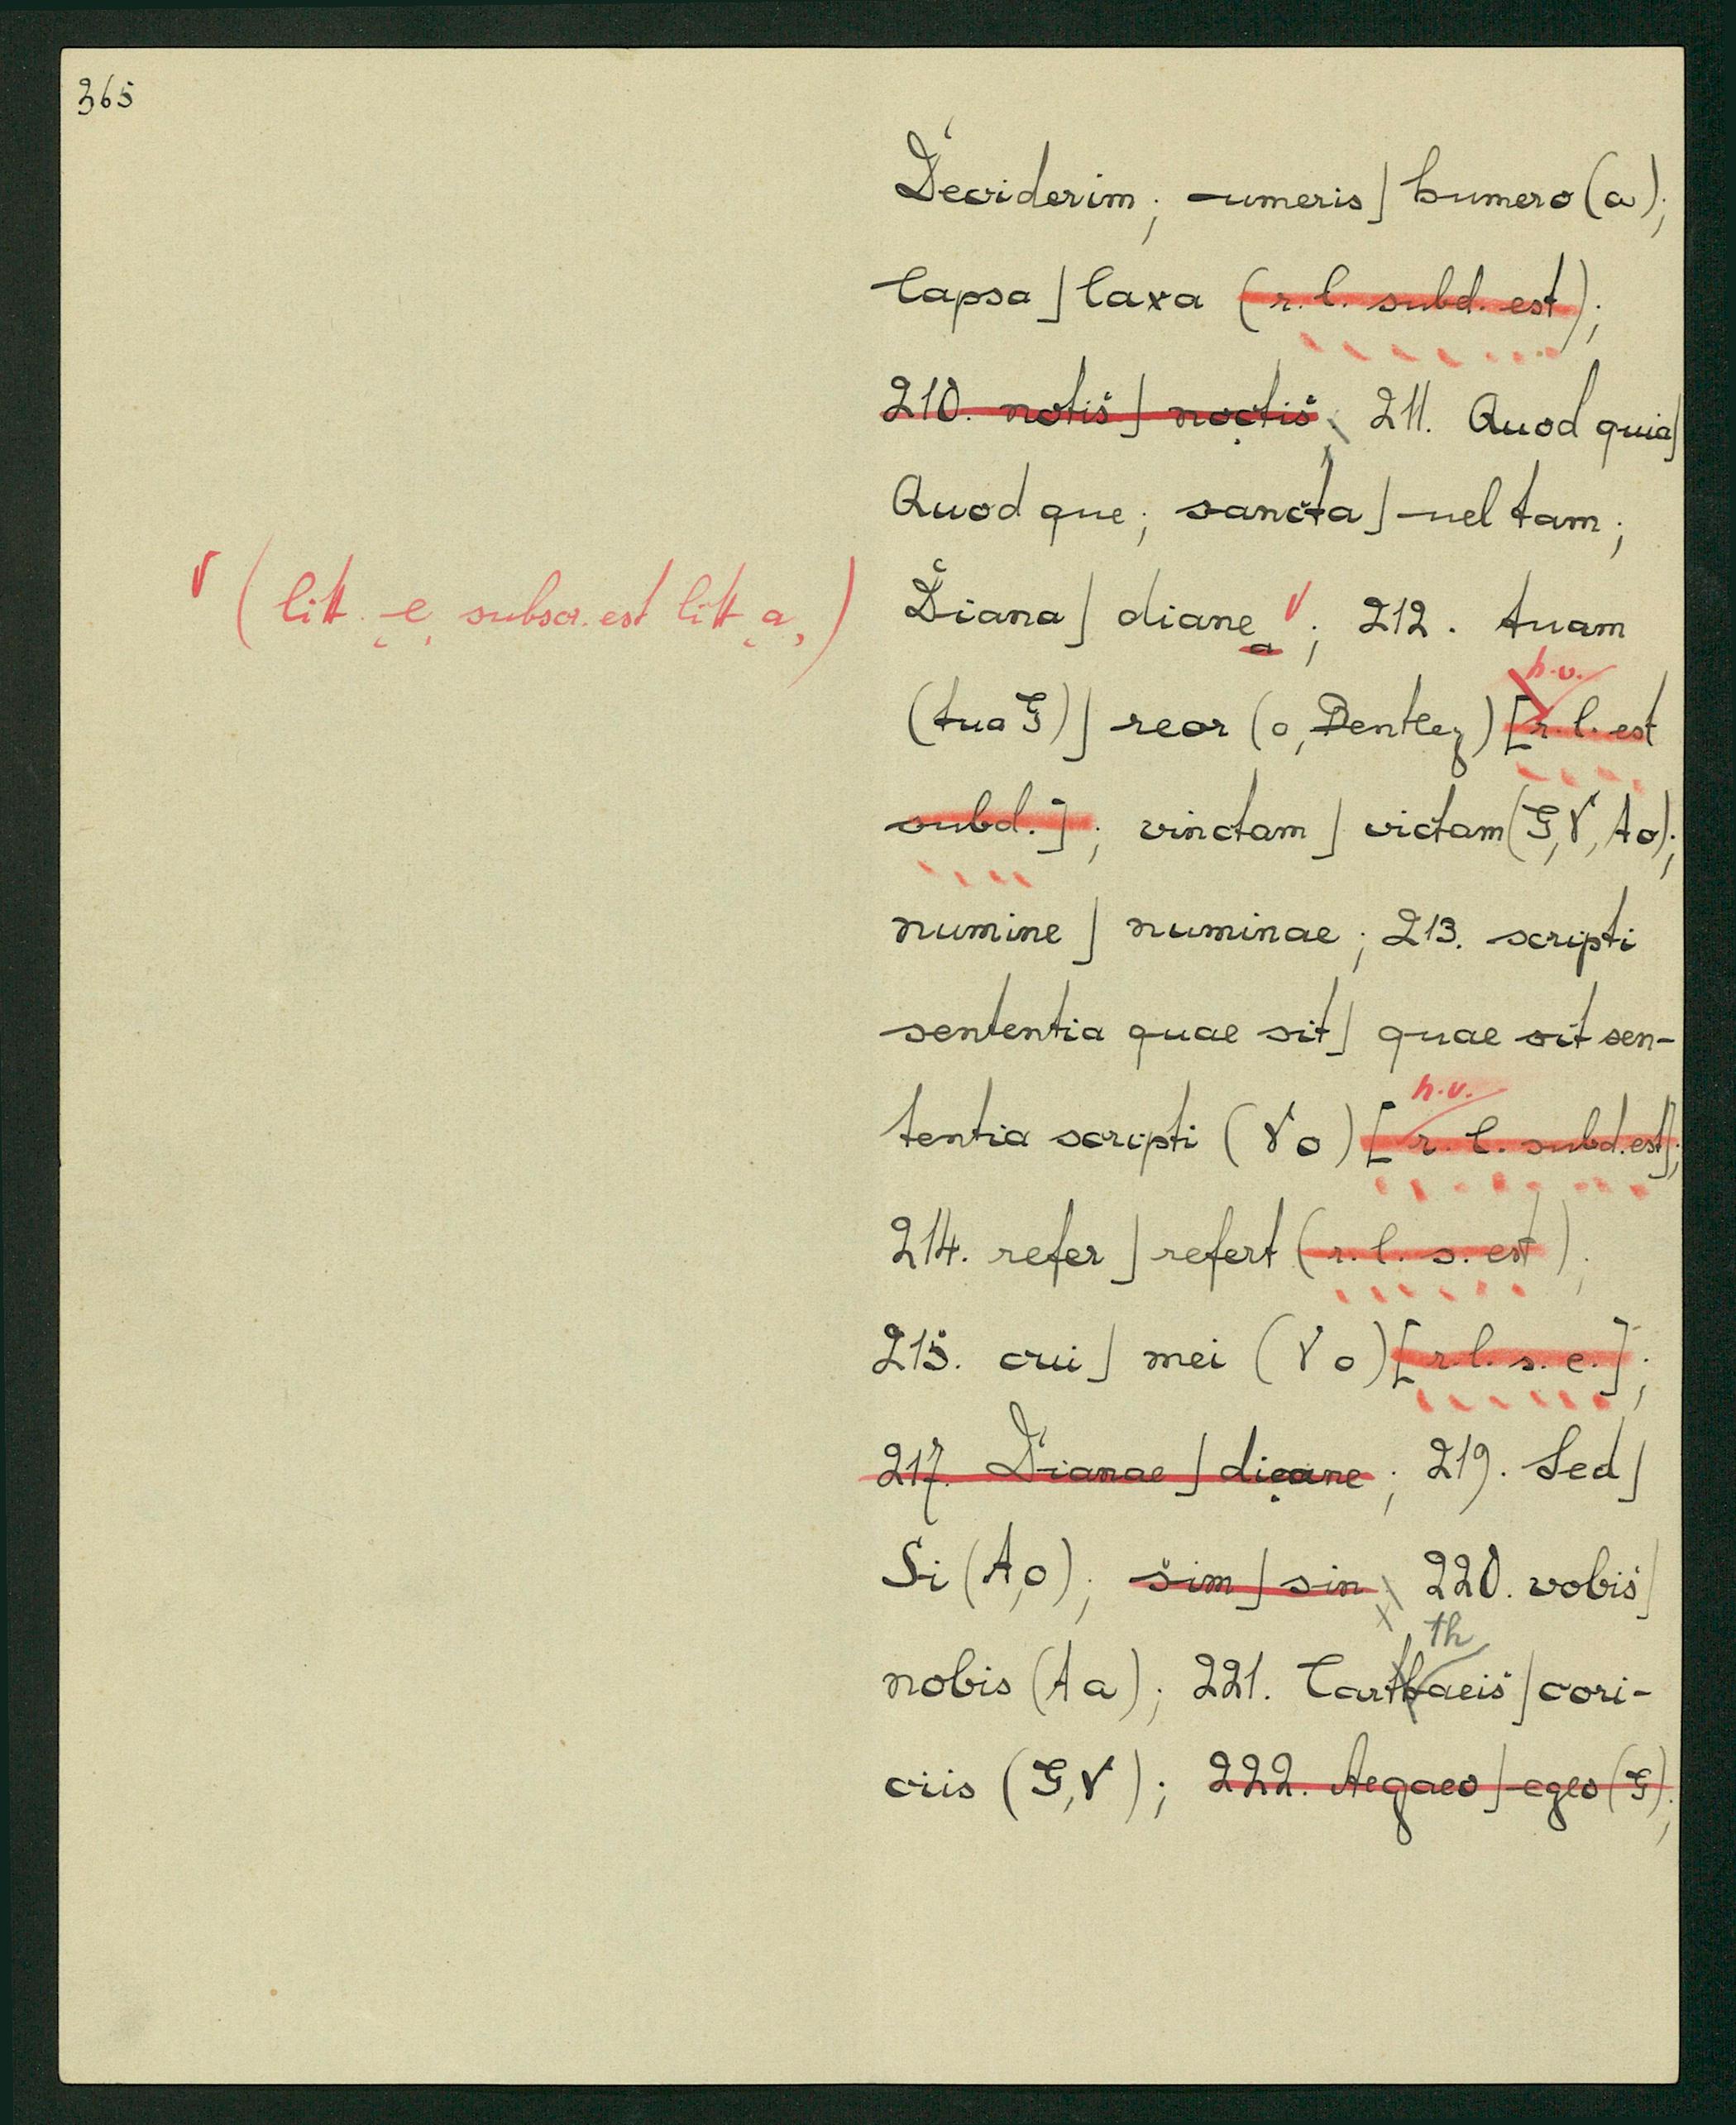 365
Deciderim; umeris] humero (a);
lapsa] laxa (r. l. subd. est);
210. notis] noctis; 211. Quod quia]
Quod que; sancta] uel tam;
V (litt. e subscr. est litt a,)
Diana] diane a V; 212. tuam
h.v.
(tua G)] reor (o, Bentley) [r. l. est
subd.]; vinctam] victam (G, V, Ao);
numine] numinae; 213. scripti
sententia quae sit] quae sit sen-
h.v.
tentia scripti (V o) [r. l. subd. est];
214. refer] refert (r. l. s. est);
215. cui] mei (V o) [r. l. s. e.];
217. Dianae] dieane; 219. Sed]
Si (A, o); sim] sin; 220. vobis]
th
nobis (A a); 221. Carthaeis] cori-
ciis (G, V); 222. Aegaeo] egeo (G);